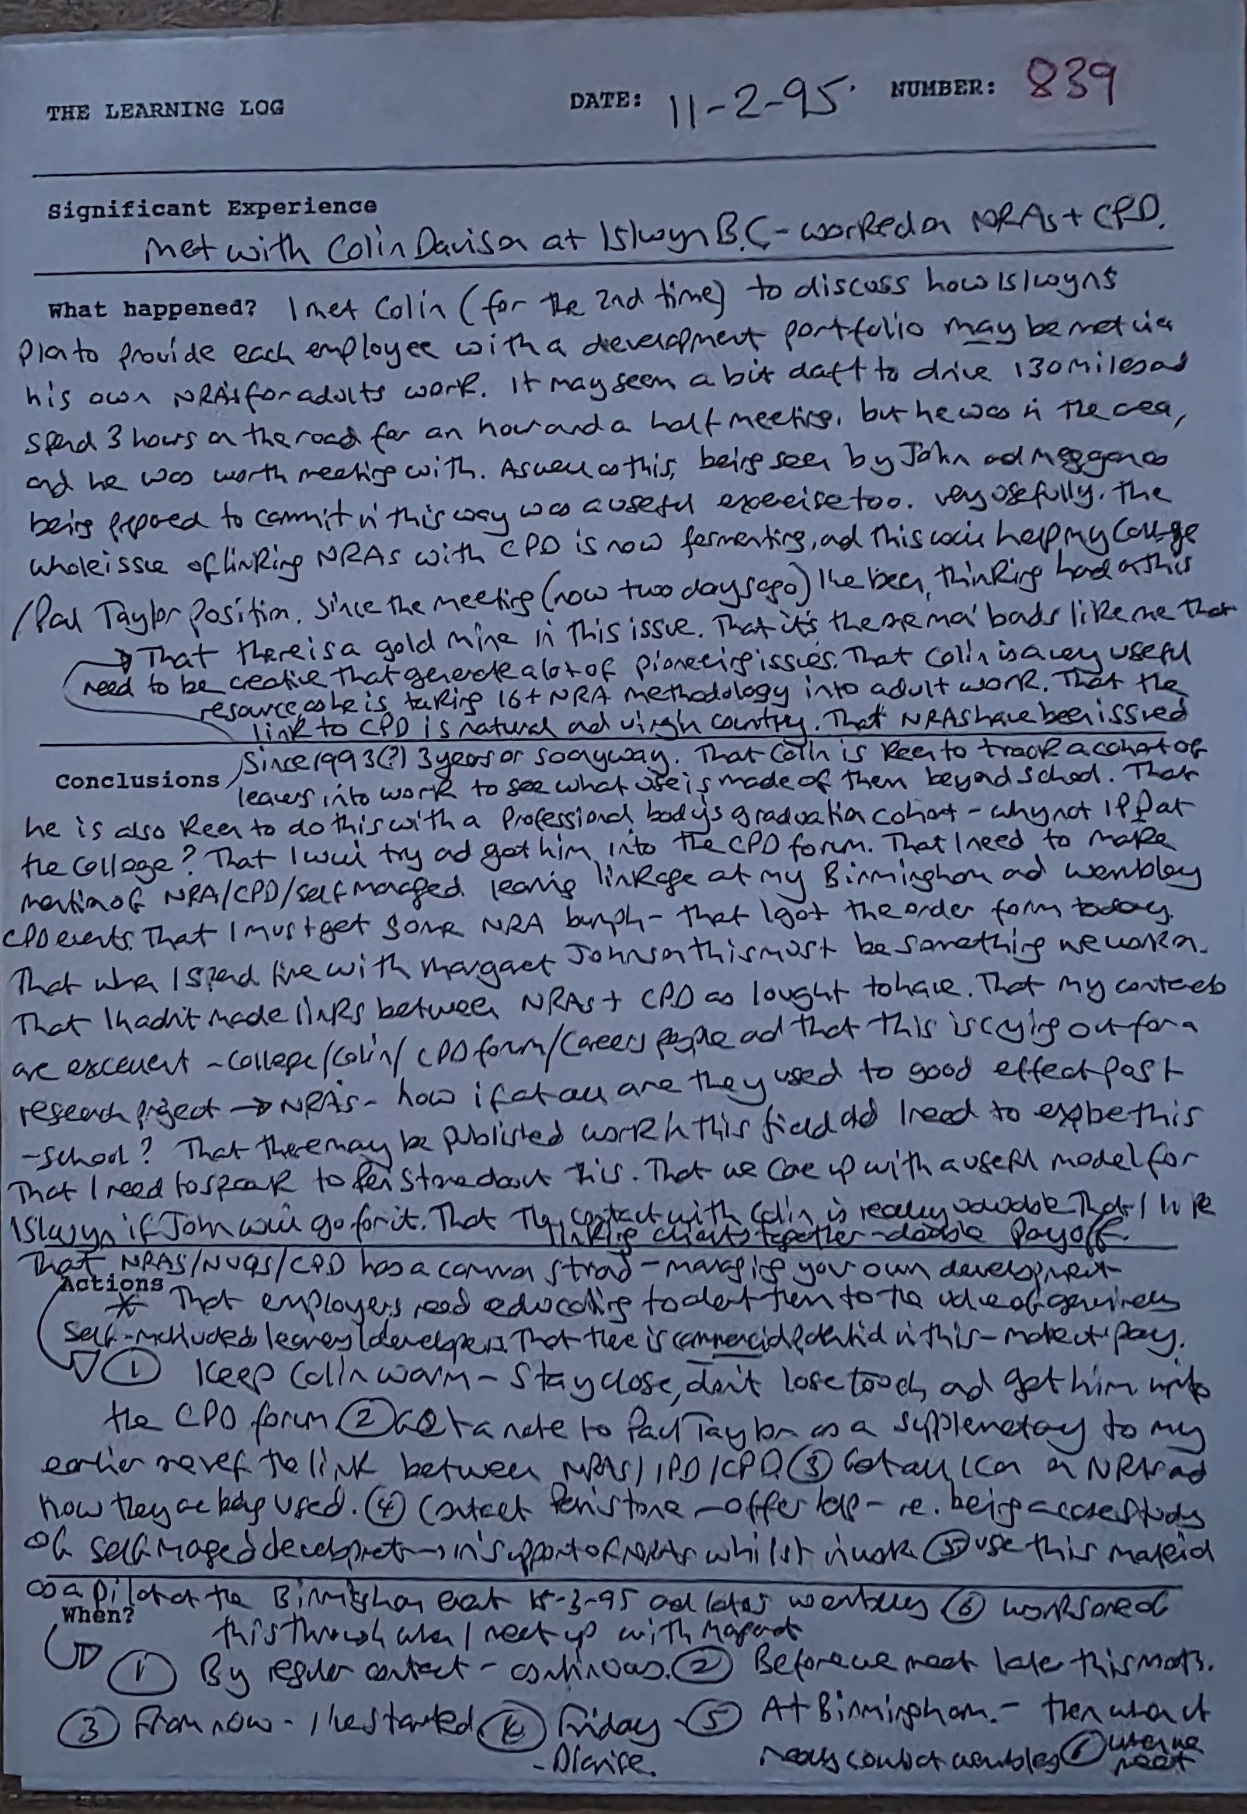 THE LEARNING LOG DATE: 11-2-95. NUMBER: 839
Significant Experience
Met with Colin Davison at Islwyn B.C - worked on NRAs + CPD.
What happened? I met Colin (for the 2nd time) to discuss how Islwyns
plan to provide each employee with a development portfolio may be met via
his own NRAs for adults work. It may seem a bit daft to drive 130 miles and
spend 3 hours on the road for an hour and a half meeting, but he was in the area,
and he was worth meeting with. As well as this, being seen by John and Meggan as
being prepared to commit in this way was a useful exercise too. Very usefully. The
whole issue of linking NRAs with CPD is now fermenting, and this will help my College
/Paul Taylor position. Since the meeting (now two days ago) I've been thinking hard on this
→ That there is a gold mine in this issue. That it's the nomads like me that
need to be creative that generate a lot of pioneering issues. That Colin is a very useful
resource as he is taking 16+ NRA methodology into adult work. That the
link to CPD is natural and virgin country. That NRAs have been issued
Conclusions since 1993(?) 3 years or so anyway. That Colin is keen to track a cohort of
leavers into work to see what use is made of them beyond school. That
he is also keen to do this with a professional body's graduation cohort - why not IPD at
the College? That I will try and get him into the CPD forum. That I need to make
mention of NRA/CPD/self managed learning linkage at my Birmingham and Wembley
CPD events. That I must get some NRA bumph - that I got the order form today.
That when I spend time with Margaret Johnson this must be something we work on.
That I hadn't made links between NRAs + CPD as I ought to have. That my contacts
are excellent - College/Colin/CPD forum/Careers people and that this is crying out for a
research project → NRAs - how if at all are they used to good effect past
-school? That there may be published work in this field and I need to this
That I need to speak to Pen Stone about this. That we came up with a useful model for
Islwyn if John will go for it. That contact with Colin is really valuable. That I like
linking clients together - double payoff.
That NRAs/NVQs/CPD has a common strand - managing your own development
Actions
* That employers need educating to alert them to the value of
self- learners/developers. That there is commercial potential in this - make it pay.
① Keep Colin warm - stay close, don't lose touch, and get him into
the CPD forum ② Get a note to Paul Taylor as a supplementary to my
earlier one ref the link between NRAs/IPD/CPD ③ Get all I can on NRAs and
how they are being used. ④ Contact Pen Stone - offer help - re. being a case study
of self managed development → in support of NRAs whilst in work ⑤ use this material
as a pilot at the Birmingham event -3-95 and later Wembley ⑥ work
When? this through when I meet up with Margaret
① By regular contact - continuous. ② Before we meet late this month.
③ From now - I've started ④ Friday ⑤ At Birmingham. - then when it
- Diarise. Wembley ⑥ when we
meet